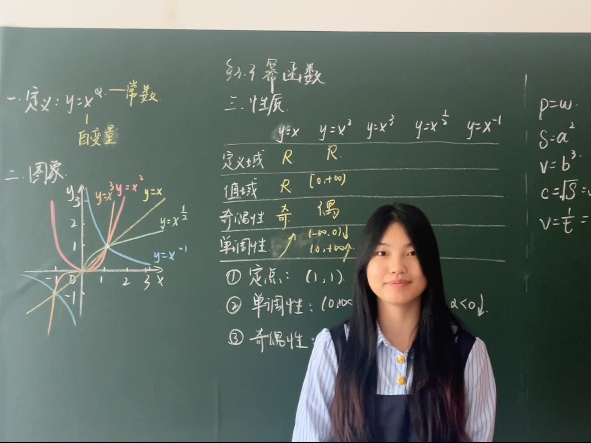 §3.3 幂函数
一.定义: y=x^α —常数
自变量
二.图象
y
3
2
1
-1
-1 0 1 2 3 x
y=x³ y=x² y=x
y=x^½
y=x⁻¹
三.性质
y=x y=x² y=x³ y=x^½ y=x⁻¹
定义域 R R
值域 R [0,+∞)
奇偶性 奇 偶
单调性 ↗ (-∞,0)↓
(0,+∞)↑
① 定点: (1,1)
② 单调性: (0,+∞ α<0↓.
③ 奇偶性:
p=w.
S=a²
V=b³.
c=√S=
v=1/t =